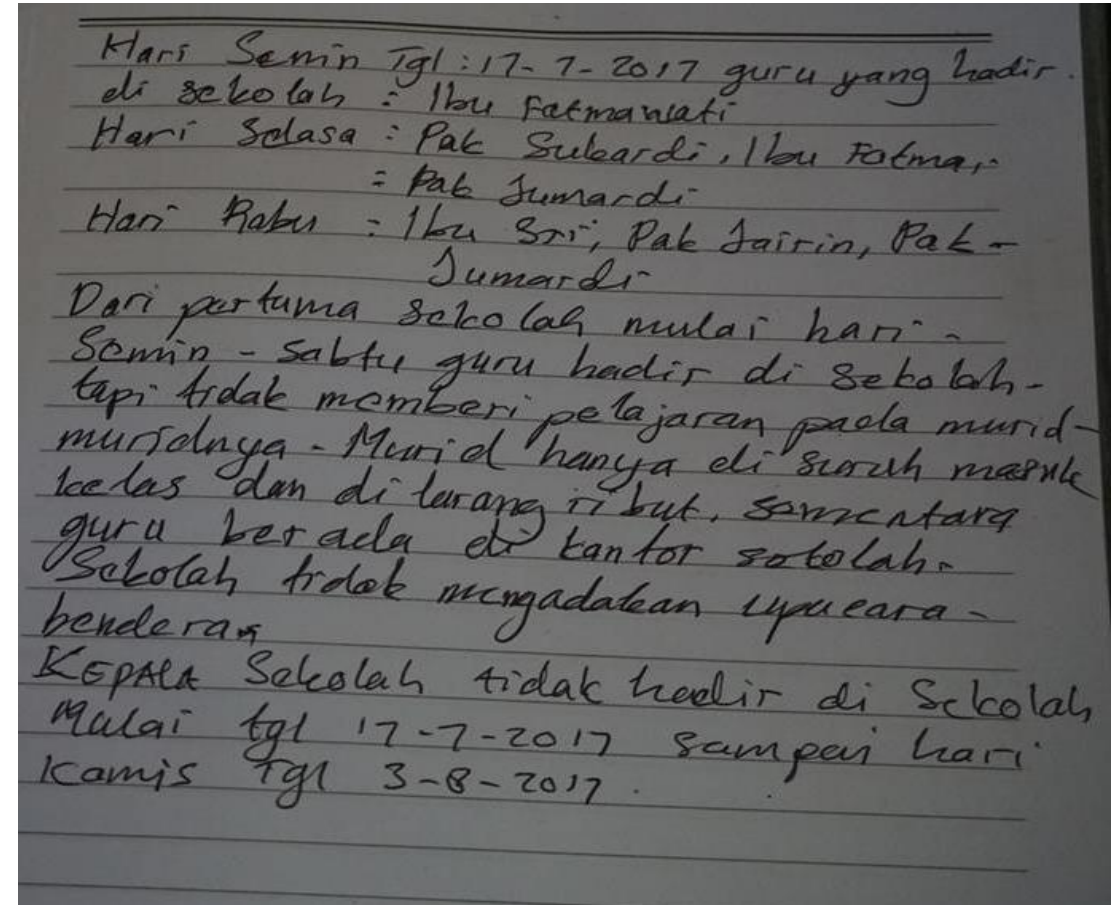 Hari Senin Tgl : 17-7-2017 guru yang hadir.
di sekolah : Ibu Fatmawati
Hari Selasa : Pak Sukardi, Ibu Fatma,-
= Pak Jumardi
Hari Rabu : Ibu Sri, Pak Jairin, Pak -
Jumardi
Dari pertama sekolah mulai hari -
Senin - Sabtu guru hadir di sekolah -
tapi tidak memberi pelajaran pada murid-
muridnya - Murid hanya di suruh masuk
kelas dan di larang ribut, sementara
guru berada di kantor sekolah.
Sekolah tidak mengadakan upacara -
bendera.
KEPALA Sekolah tidak hadir di Sekolah
Mulai tgl 17-7-2017 sampai hari
Kamis Tgl 3-8-2017.